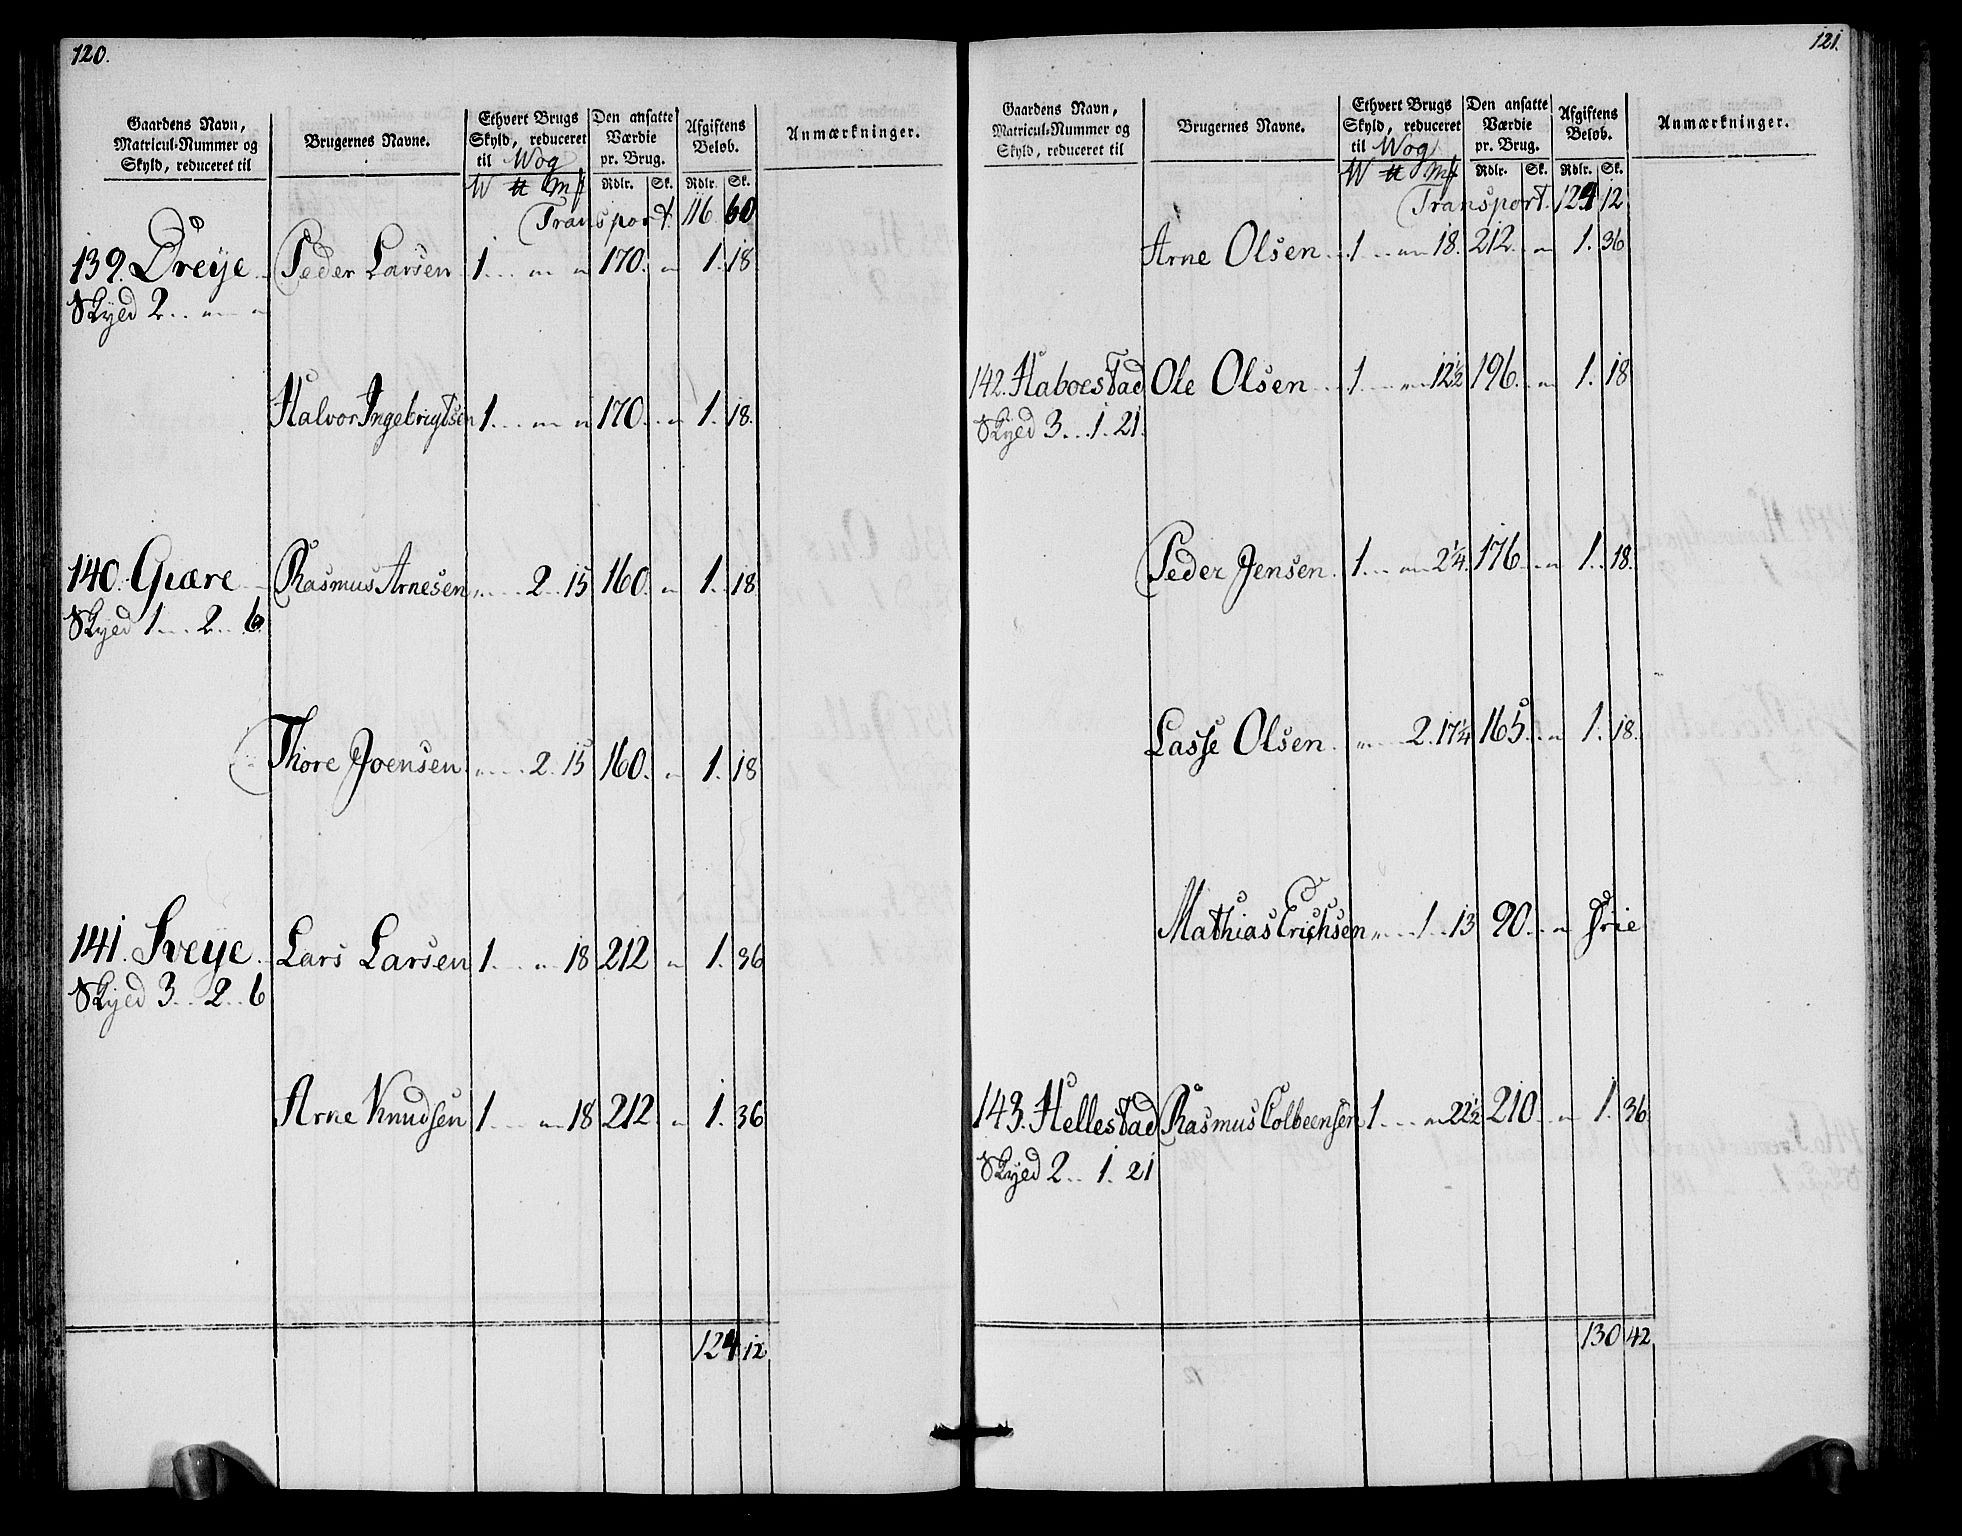 120.
Gaardens Navn, Matricul-Nummer og Skyld, reduceret til
Brugernes Navne.
Ethvert Brugs Skyld, reduceret til Wog
W ℔ Mk
Den ansatte Værdie pr. Brug.
Rdlr. Sk.
Afgiftens Beløb.
Rdlr. Sk.
Anmærkninger.
Transport. 116 60
139. Dreÿe Peder Larsen 1 . . . „ „ 170. „ 1. 18
Skyld 2 . . „ „
Halvor Ingebrigtsen 1 . . . „ „ 170. „ 1. 18.
140. Giære Rasmus Arnesen „ . . . 2 . . 15 160. „ 1. 18
Skyld 1 . . . 2 . . 6.
Thore Joensen „ . . . 2 . 15 160. „ 1. 18
141. Sveÿe Lars Larsen 1 . . . „ 18 212 „ 1. 36
Skyld 3 . . 2 . . 6
Arne Knudsen 1 . . . „ 18 212 „ 1. 36
124 12
121.
Gaardens Navn, Matricul-Nummer og Skyld, reduceret til
Brugernes Navne.
Ethvert Brugs Skyld, reduceret til Wog
W ℔ Mk
Den ansatte Værdie pr. Brug.
Rdlr. Sk.
Afgiftens Beløb.
Rdlr. Sk.
Anmærkninger.
Transport. 124 12
Arne Olsen 1 . . „ 18. 212. „ 1. 36
142. Haboestad Ole Olsen 1 . . . „ 12½ 196. „ 1. 18
Skyld 3 . . 1 . 21.
Peder Jensen. 1 . . . „ 2¼. 176. „ 1. 18.
Lasse Olsen. „ . . . 2. 17¼ 165. „ 1. 18.
Mathias Erichsen „ . . . 1 . . 13 90. „ Frie
143. Hellestad Rasmus Colbeensen 1 . . . „ 22½ 210. „ 1. 36
Skyld 2 . . 1. 21
130 42